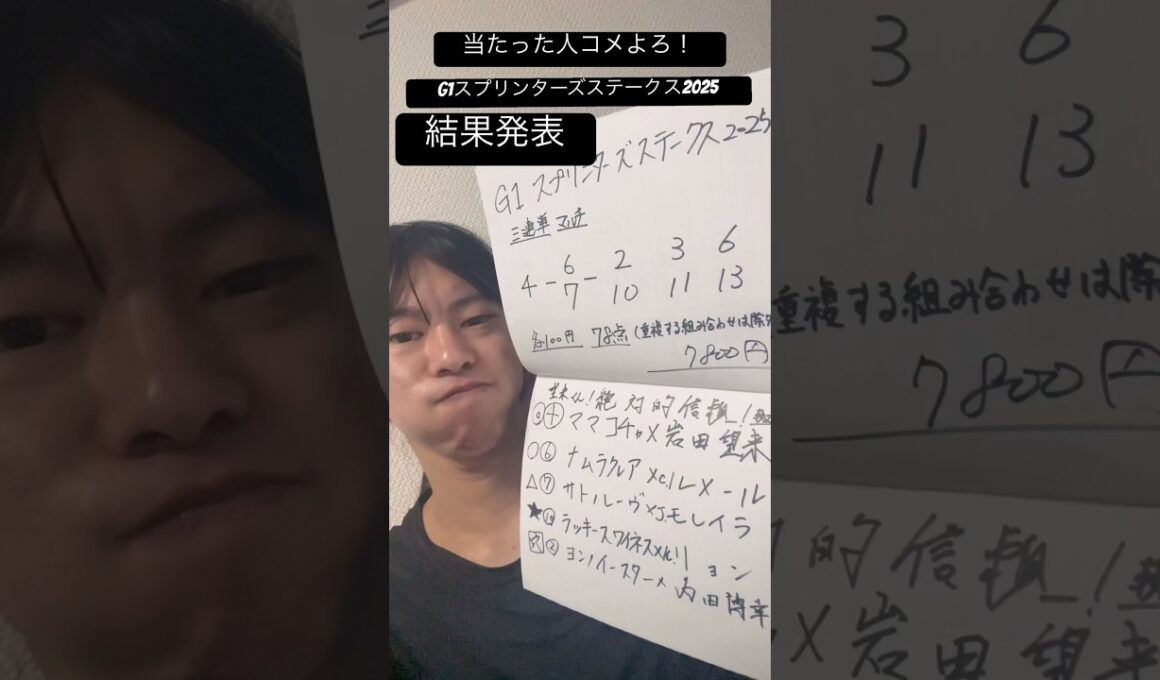 当たった人コメよろ！
G1スプリンターズステークス2025
結果発表
G1 スプリンターズステークス2025
三連単 マルチ
6 2 3 6
4 - 7 - 10 11 13
各100円 78点(重複する組み合わせは除
7800円
望来くん!絶対的信頼!
◎④ママコチャ×岩田望来
○⑥ナムラクレア×C.ルメール
△⑦サトノレーヴ×J.モレイラ
★⑩ラッキースワイネス×K.リョン
穴②ヨシノイースター×内田博幸
3 6
11 13
重複する組み合わせは除
7800円
的信頼!
×岩田望来